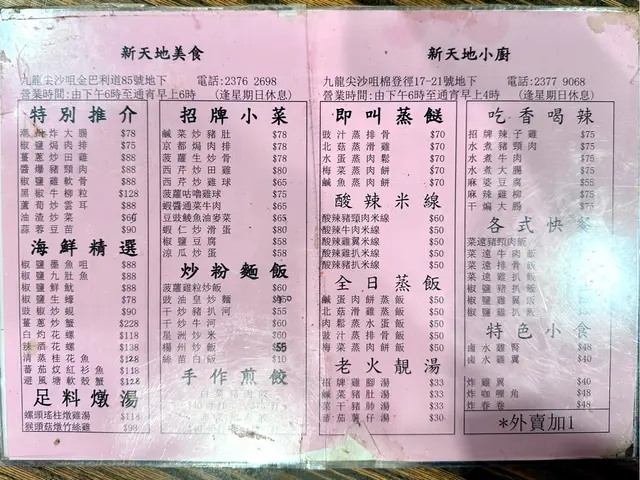 新天地美食
九龍尖沙咀金巴利道85號地下 電話:2376 2698
營業時間:由下午6時至通宵上午6時 (逢星期日休息)
特別推介
炸大腸 $78
椒鹽焗肉排 $75
薑蔥炒田雞 $88
醬爆豬頸肉 $88
椒鹽雞軟骨 $88
黑椒牛柳粒 $128
蘆荀炒雲耳 $88
油渣炒菜 $60
蒜蓉豆苗 $90
海鮮精選
椒鹽墨魚咀 $88
椒鹽九肚魚 $88
椒鹽鮮魷 $88
椒鹽生蠔 $78
豉椒炒蜆 $90
薑蔥炒蟹 $228
白灼花螺 $118
辣酒花螺 $138
清蒸桂花魚 $128
蕃茄炆紅衫魚 $118
避風塘軟殼蟹 $128
足料燉湯
螺頭瑤柱燉雞湯 $118
猴頭菇燉竹絲雞 $98
招牌小菜
鹹菜炒豬肚 $78
京都焗肉排 $78
菠蘿生炒骨 $78
西芹炒田雞 $80
西芹炒雞球 $65
菠蘿咕嚕雞球 $75
蝦醬通菜牛肉 $65
豆豉鯪魚油麥菜 $65
蝦仁炒滑蛋 $80
椒鹽豆腐 $58
涼瓜炒蛋 $58
炒粉麵飯
菠蘿雞粒炒飯 $60
豉油皇炒麵
干炒豬扒河 $55
干炒牛河 $60
星洲炒米 $60
楊州炒飯 $55
絲苗白飯 $10
手作煎餃
新天地小廚
九龍尖沙咀棉登徑17-21號地下 電話:2377 9068
營業時間:由下午6時至通宵上午4時 (逢星期日休息)
即叫蒸餸
豉汁蒸排骨 $70
北菇蒸滑雞 $70
水蛋蒸肉鬆 $70
梅菜蒸肉餅 $70
鹹魚蒸肉餅 $70
酸辣米線
酸辣豬頸肉米線 $60
酸辣牛肉米線 $50
酸辣雞翼米線 $50
酸辣雞扒米線 $50
酸辣豬扒米線 $50
全日蒸飯
鹹蛋肉餅蒸飯 $50
北菇滑雞蒸飯 $50
肉鬆蒸水蛋飯 $50
豉汁蒸排骨飯 $50
梅菜蒸肉餅飯 $50
老火靚湯
招牌雞腳湯 $33
鹹菜豬肚湯 $33
菜干豬肺湯 $33
蕃茄薯仔湯 $30
吃香喝辣
招牌辣子雞 $75
水煮豬頸肉 $75
水煮牛肉 $75
水煮雞 $75
麻婆豆腐 $55
麻辣雞柳 $75
干煸大腸 $75
各式快餐
菜遠豬頸肉飯
菜遠牛肉飯
菜遠排骨飯
菜遠雞球飯
椒鹽雞翼飯
椒鹽豬扒飯
特色小食
鹵水雞腎 $48
鹵水雞翼 $40
炸雞翼 $40
炸咖喱角 $48
炸春卷 $48
*外賣加1